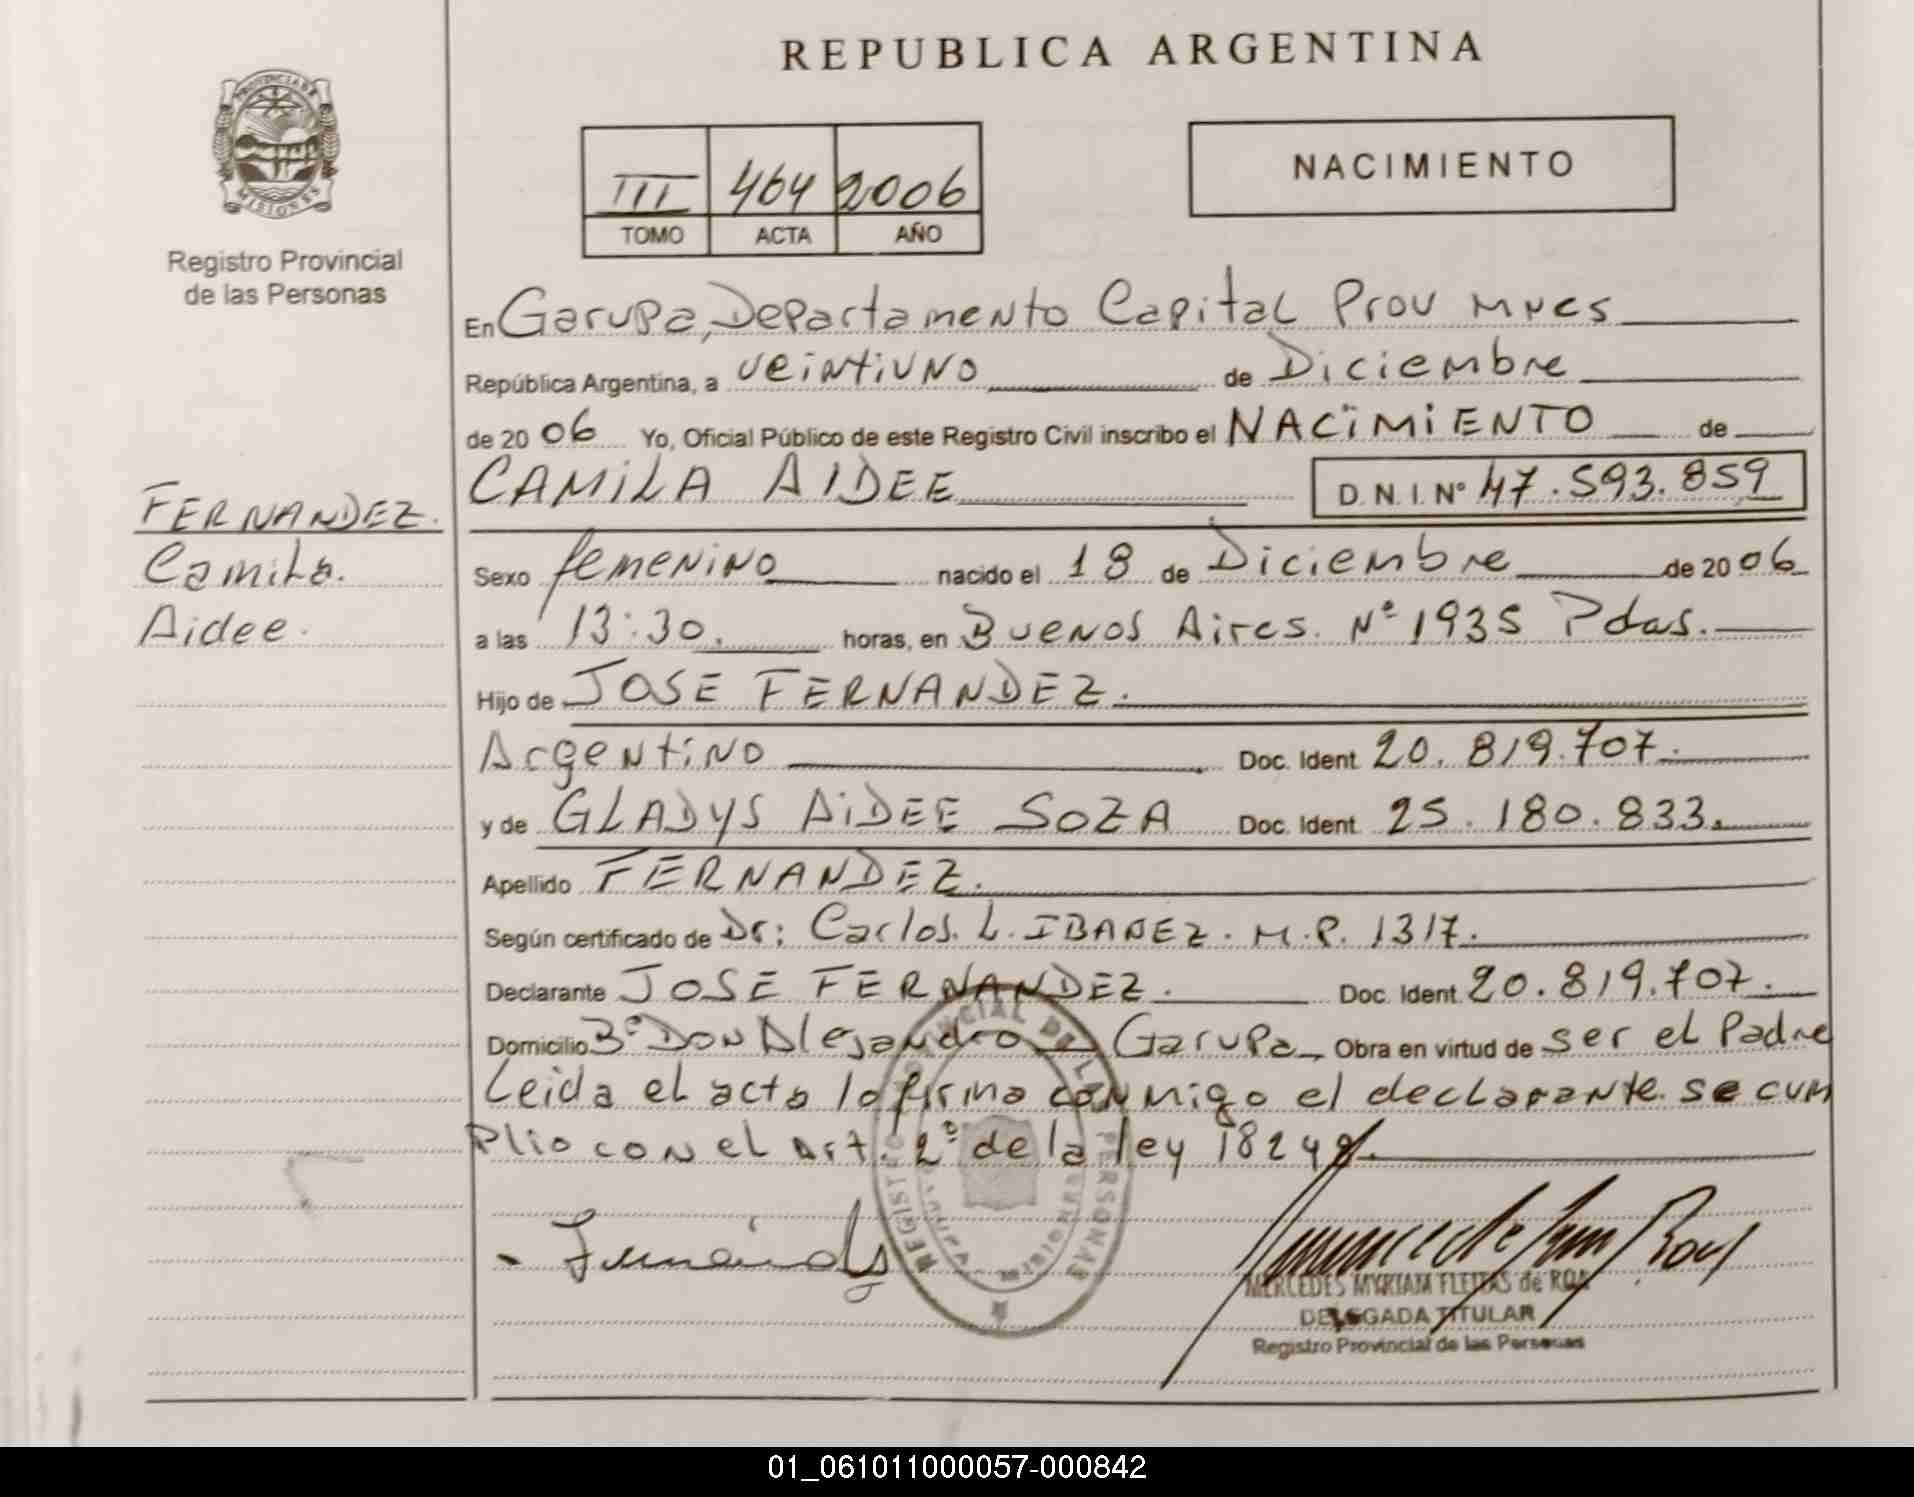 REPUBLICA ARGENTINA
PROVINCIA DE
MISIONES
Registro Provincial
de las Personas
III 464 2006
TOMO ACTA AÑO
NACIMIENTO
En Garupa, Departamento Capital Prov Mnes
República Argentina, a veintiuno de Diciembre
de 2006 Yo, Oficial Público de este Registro Civil inscribo el NACIMIENTO de
CAMILA AIDEE D.N.I. Nº 47.593.859
FERNANDEZ.
Camila.
Aidee.
Sexo femenino nacido el 18 de Diciembre de 2006
a las 13:30. horas, en Buenos Aires. Nº 1935 Pdas.
Hijo de JOSE FERNANDEZ.
Argentino Doc. Ident. 20.819.707.
y de GLADYS AIDEE SOZA Doc. Ident. 25.180.833.
Apellido FERNANDEZ.
Según certificado de Dr: Carlos. L. IBAÑEZ. M.P. 1317.
Declarante JOSE FERNANDEZ. Doc. Ident. 20.819.707.
Domicilio Bº Don Alejandro Garupa Obra en virtud de ser el Padre
Leida el acta la firma conmigo el declarante. se cum
plio con el Art. 2º de la ley 18248.
REGISTRO PROVINCIAL DE LAS PERSONAS
MERCEDES MYRIAM FLEITAS de ROA
DELEGADA TITULAR
Registro Provincial de las Personas
01_061011000057-000842